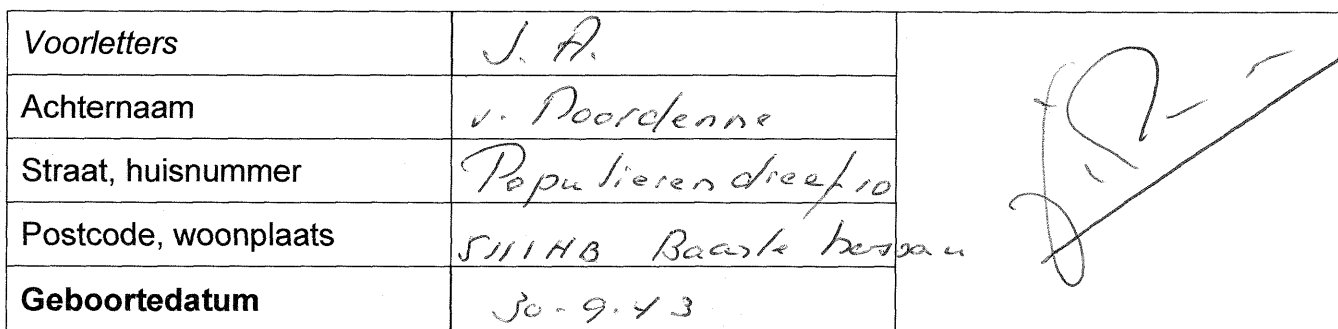 Voorletters J. A.
Achternaam v. Noordenne
Straat, huisnummer Populierendreef 10
Postcode, woonplaats 5111HB Baarle
Geboortedatum 30-9-43